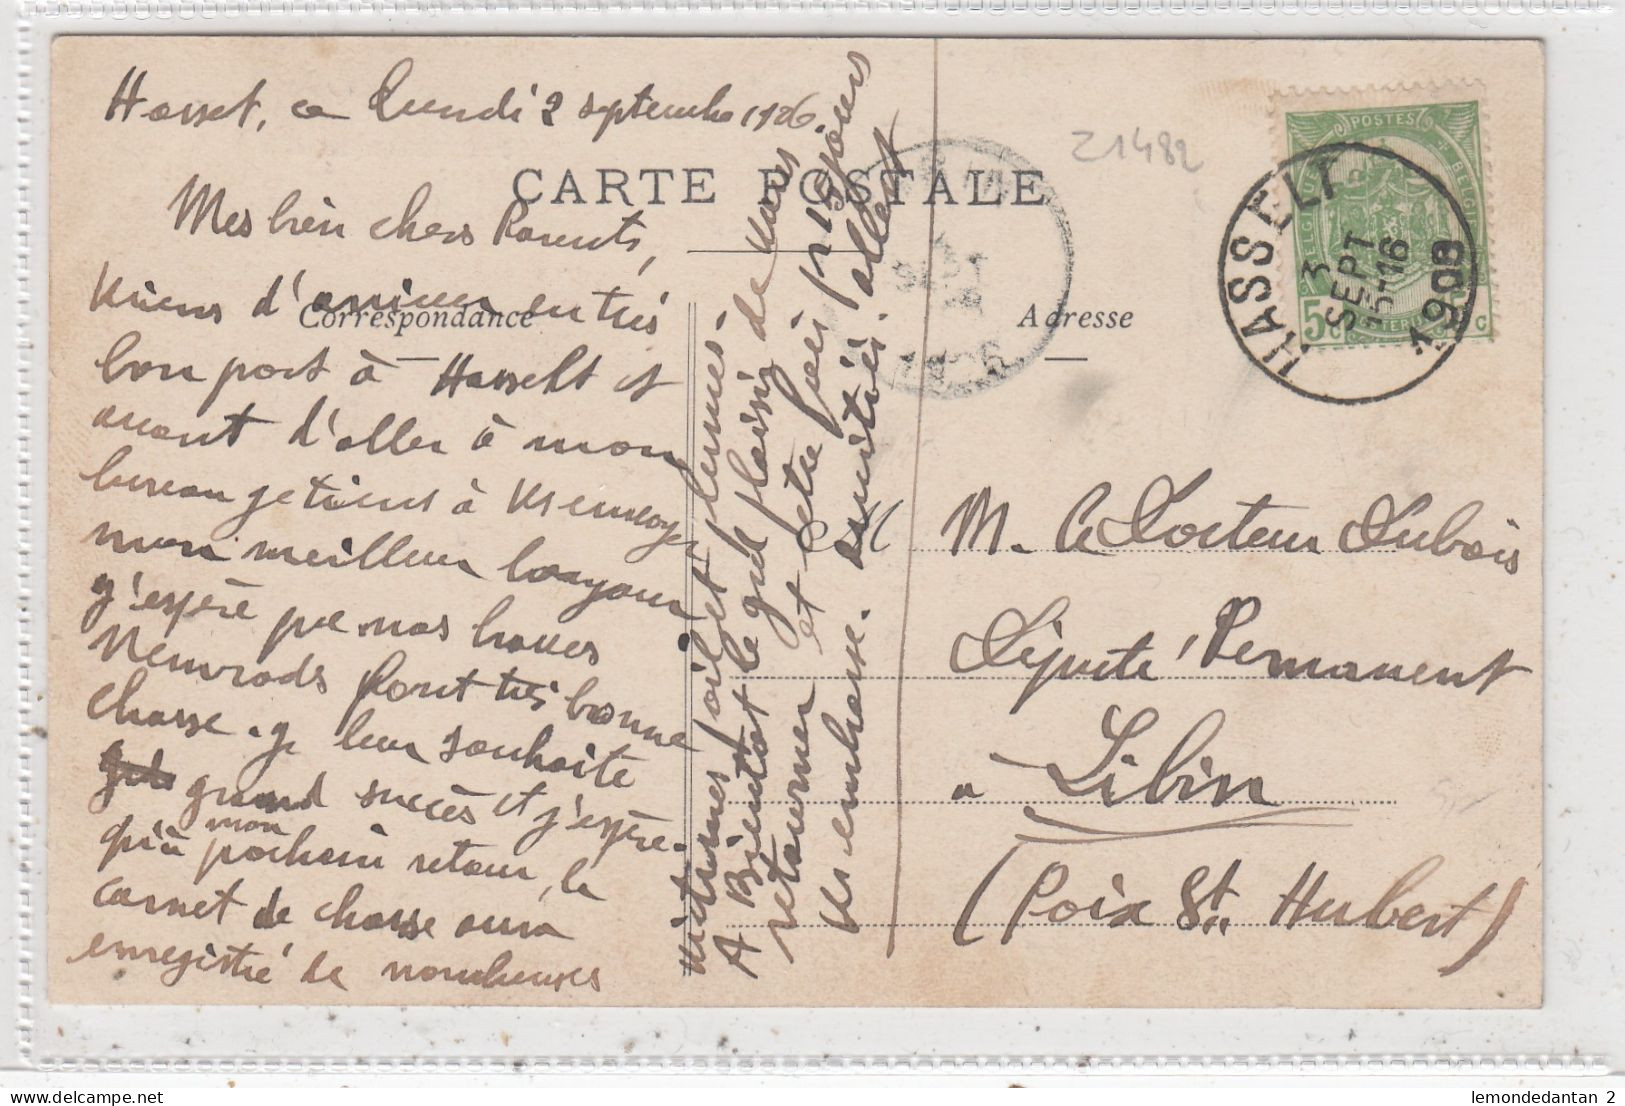 Hasselt, ce Lundi 2 septembre
CARTE POSTALE
Z1482
Mes bien chers Parents,
Viens d'arriver en très
Correspondance
bon port à Hasselt et
avant d'aller à mon
bureau je tiens à vs envoyer
mon meilleur bonjour
j'espère que nos braves
Nemrods font très bonne
chasse. je leur souhaite
grand succès et j'espère
qu'à mon prochain retour, le
carnet de chasse aura
enregistré de nombreuses
victimes poil et plumes
A Bientôt le grd plaisir de vous
retourner et
Vs embrasse. amitiés. Albert
Adresse
BELGIQUE POSTES BELGIE
5c
HASSELT
3
SEPT
15-16
1908
M
M. le Docteur Dubois
Député Permanent
à Libin
(Poix St. Hubert)
lemondedantan 2